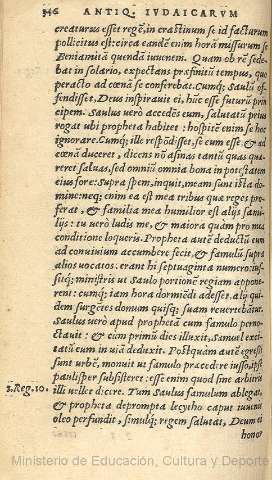 346 ANTIQ. IVDAICARVM
creaturus esset regē, in crastinum se id facturum
pollicitus est: circa eandē enim horā missurum se
Beniamitā quendā iuuenem. Quam ob rē sede-
bat in solario, expectans præfinitū tempus, quo
peracto ad cœnā se conferebat. Cumq; Saulū of-
fendisset, Deus inspirauit ei, hūc esse futurū prin
cipem. Saulus verò accedēs eum, salutatū prius
rogat vbi propheta habitet: hospitē enim se hoc
ignorare. Cumq; ille respōdisset, se eum esse, & ad
cœnā duceret, dicens nō asinas tantū quas quæ-
reret saluas, sed omniū omnia bona in potestatem
eius fore: Supra spem, inquit, meam sunt ista do-
mine: neq; enim ea est mea tribus quæ reges pro-
ferat, & familia mea humilior est alijs fami-
lijs: tu verò ludis me, & maiora quàm pro mea
conditione loqueris. Propheta autē deductū eum
ad conuiuium accumbere fecit, & famulū supra
alios vocatos. erant hi septuaginta numero: ius-
sitq; ministris vt Saulo portionē regiam appone-
rent: cumq; iam hora dormiēdi adesset, alij qui-
dem surgētes domum quisq; suam reuertebātur.
Saulus verò apud prophetā cum famulo perno-
ctauit: & cùm primū dies illuxit, Samuel exci-
tatū eum in viā deduxit. Postquàm autē egressi
sunt vrbē, monuit vt famulo præcedere iusso, ipse
paulisper subsisteret: esse enim quod sine arbitris
1. Reg. 10. illi vellet dicere. Tum Saulus famulum ablegat,
& propheta deprompta lecytho caput iuuenis
oleo perfundit, simulq; regem salutat, Deum ei
honor
Ministerio de Educación, Cultura y Deporte